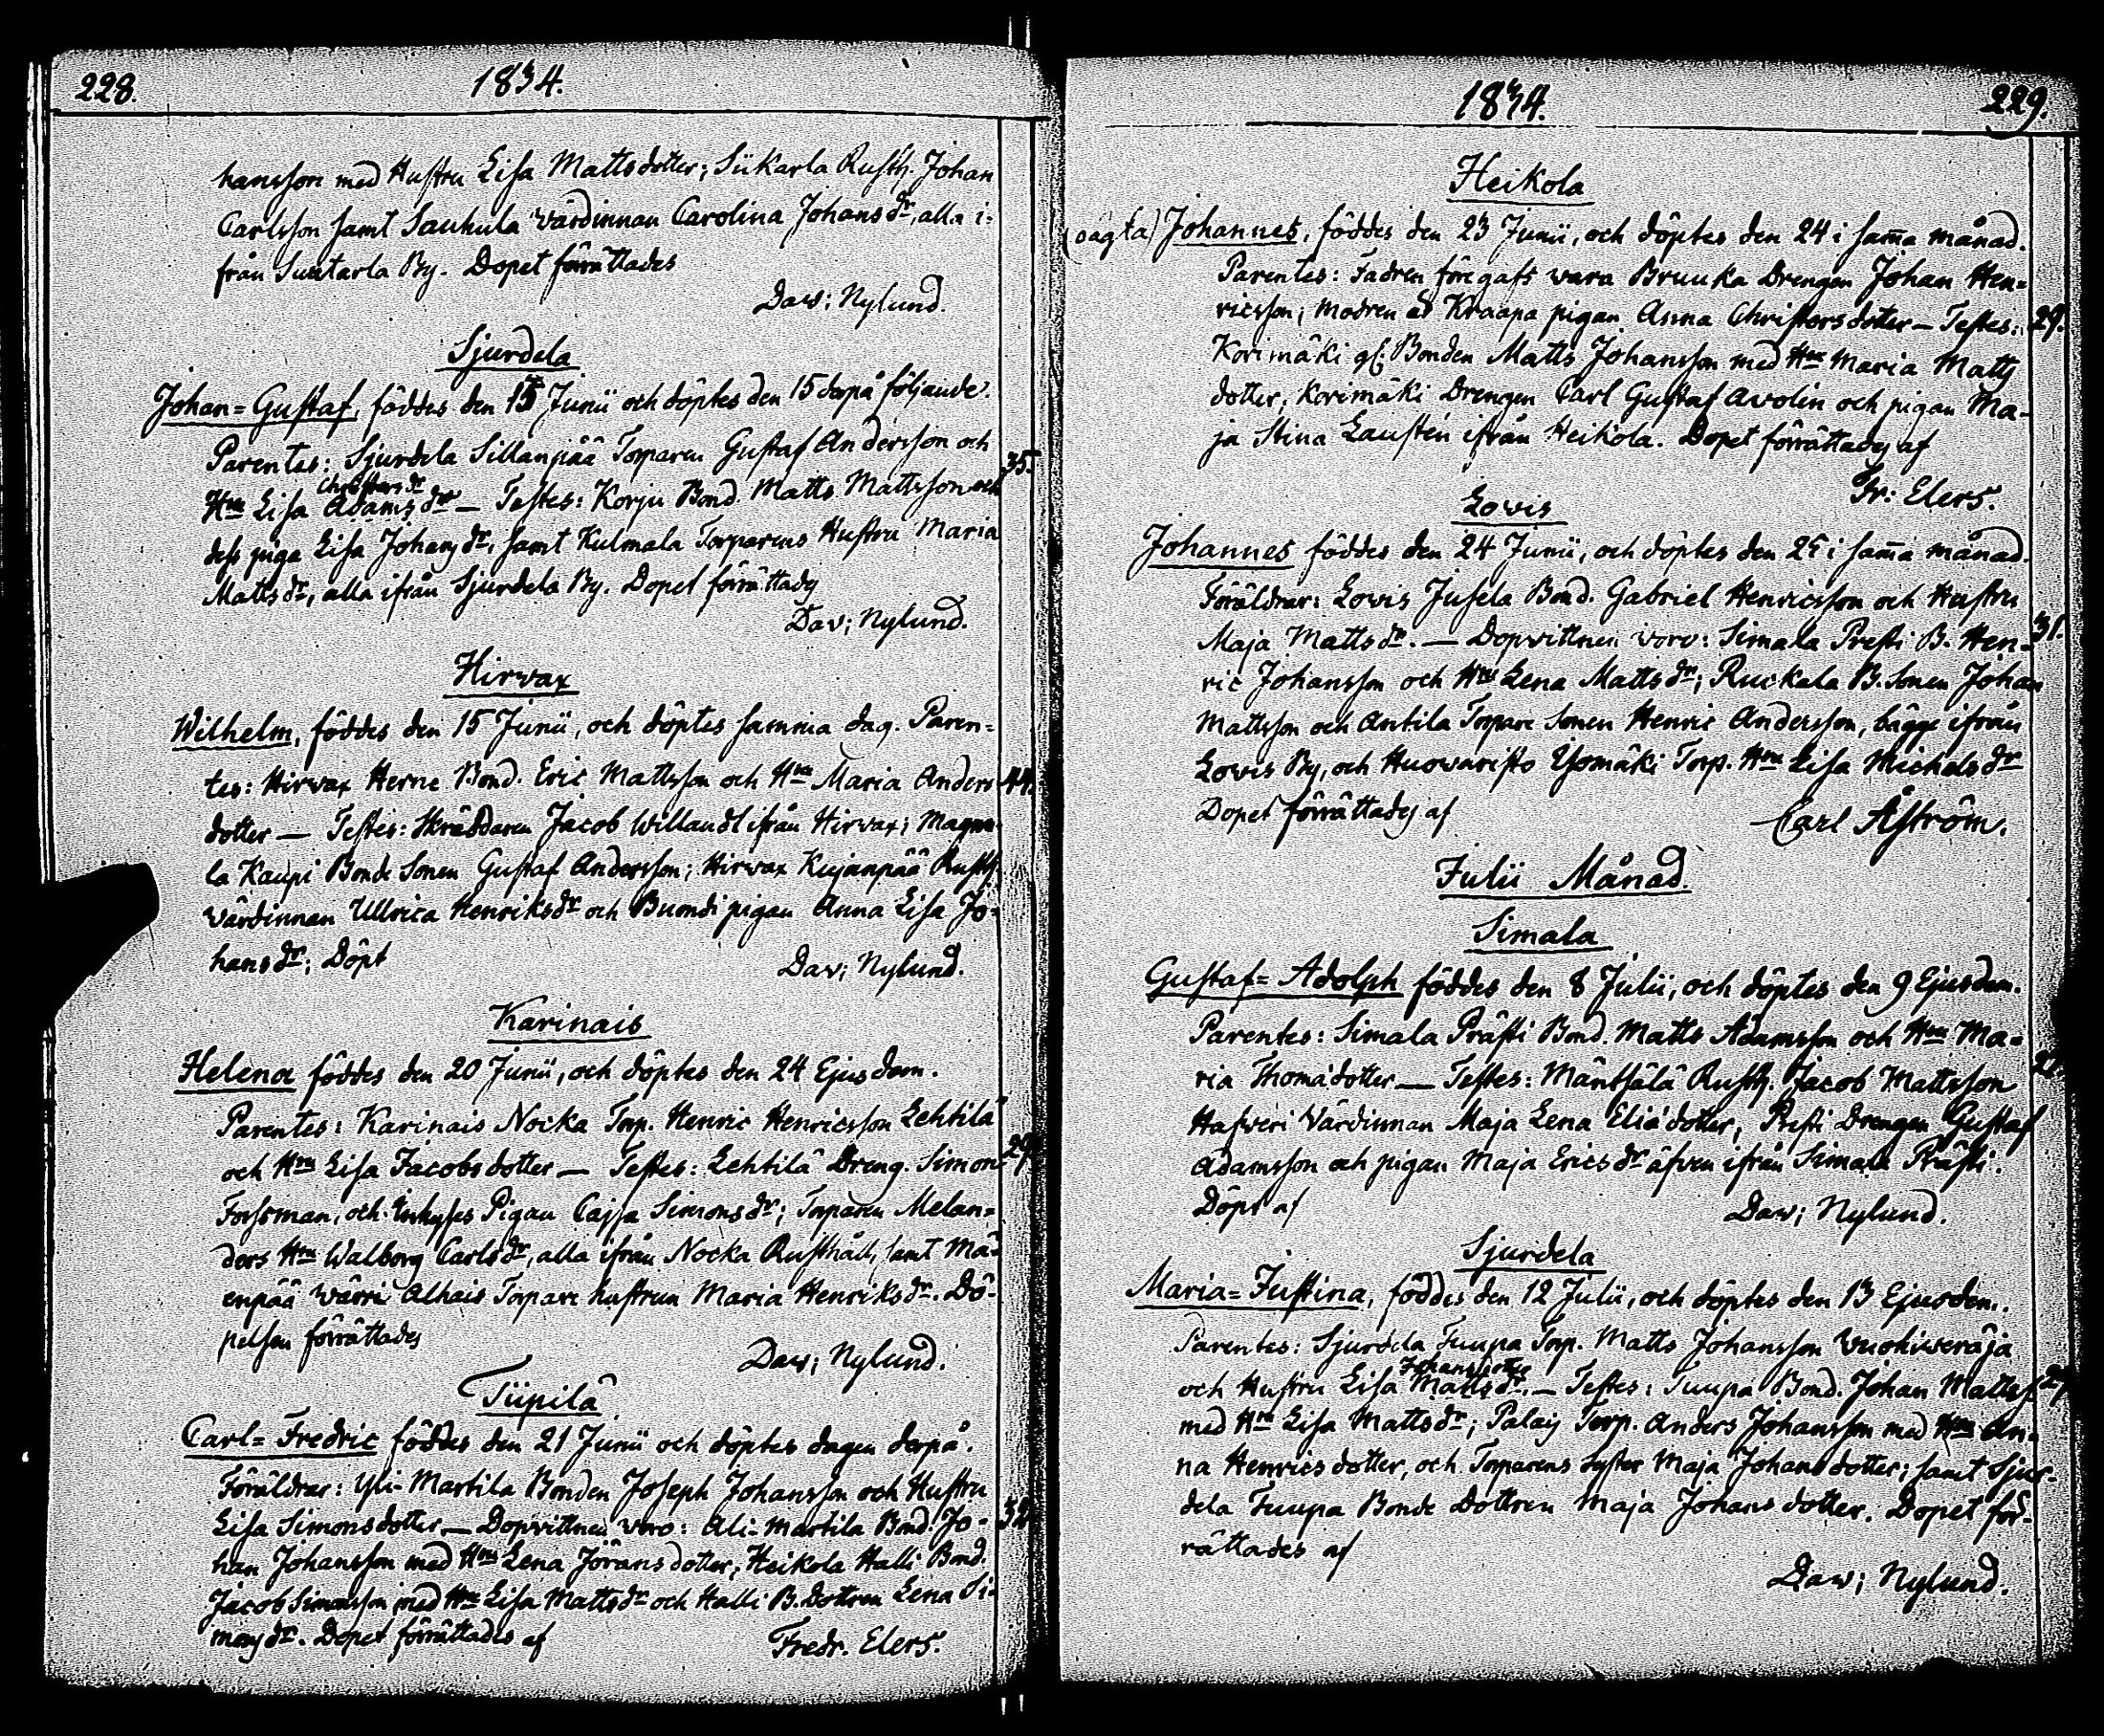 228. 1834.
hansson med Hustru Lisa Mattsdotter; Siikarla Rusth. Johan
Carlsson samt Sauhula Värdinnan Carolina Johansdr, alla i-
från Suutarla By. Dopet förrättades
Dav: Nylund.
Sjurdela
Johan=Gustaf, föddes den 15 Junii och döptes den 15 derpå följande.
Parentes: Sjurdela Sillanpää Torparen Gustaf Andersson och 35.
Christersdr
Hru Lisa Adamsdr — Testes: Korju Bond. Matts Mattsson och
dess piga Lisa Johansdr, samt Kulmala Torparens Hustru Maria
Mattsdr, alla ifrån Sjurdela By. Dopet förrättades
Dav: Nylund.
Hirvax
Wilhelm, föddes den 15 Junii, och döptes samma dag. Paren=
tes: Hirvax Herne Bond. Eric Mattsson och Hru Maria Anders 44.
dotter — Testes: Skräddaren Jacob Willandt ifrån Hirvax; Magnu-
la Kaupi Bonde Sonen Gustaf Andersson; Hirvax Kujanpää Rusth.
Värdinnan Ullrica Henriksdr och Buondi pigan Anna Lisa Jo-
hansdr; Döpt
Dav: Nylund.
Karinais
Helena föddes den 20 Junii, och döptes den 24 Ejusdem.
Parentes: Karinais Nocka Torp. Henric Henricsson Lehtilä
och Hru Lisa Jacobsdotter — Testes: Lehtilä Dreng. Simon 29.
Forssman, och Pigan Cajsa Simonsdr; Torparen Melan=
ders Hru Walborg Carlsdr, alla ifrån Nocka Rusthåll, samt Mä-
enpää Wärri Alhais Torpare hustrun Maria Henriksdr. Dö-
pelsen förrättades
Dav: Nylund.
Tiipilä
Carl=Fredric föddes den 21 Junii och döptes dagen derpå.
Föräldrar: Yli-Martila Bonden Joseph Johansson och Hustru
Lisa Simonsdotter — Dopvittnen voro: Ali-Martila Bond. Jo- 32.
han Johansson med Hru Lena Jöransdotter, Heikola Halli Bond.
Jacob Simonsson med Hru Lisa Mattsdr och Halli B. dottren Lena Si-
monsdr. Dopet förrättades af
Fredr. Elers.
1834. 229.
Heikola
(oägta) Johannes, föddes den 23 Junii, och döptes den 24 i samma månad.
Parentes: Fadren föregafs vara Bruuka Drengen Johan Hen=
ricsson; modren är Kraapa pigan Anna Christersdotter — Testes: 29.
Korimäki gl: Bonden Matts Johansson med Hru Maria Matts
dotter; Korimäki Drengen Carl Gustaf Avolin och pigan Ma-
ja Stina Lausten ifrån Heikola. Dopet förrättades af
Fr: Elers.
Lovis
Johannes föddes den 24 Junii, och döptes den 25 i samma månad.
Föräldrar: Lovis Jusela Bond. Gabriel Henricsson och Hustru
Maja Mattsdr. — Dopvittnen voro: Simala Presti B. Hen- 31.
ric Johansson och Hru Lena Mattsdr; Ruckala B. Sonen Johan
Mattsson och Antila Torpare Sonen Henric Andersson, bägge ifrån
Lovis By, och Huovaristo Ysomäki Torp. Hru Lisa Michelsdr
Dopet förrättades af
Carl Åström.
Julii Månad.
Simala
Gustaf=Adolph föddes den 8 Julii, och döptes den 9 Ejusdem.
Parentes: Simala Prästi Bond. Matts Adamsson och Hru Ma=
ria Thomädotter — Testes: Mäntsälä Rusth. Jacob Mattsson 27.
Hafveri Värdinnan Maja Lena Eliædotter, Presti Drengen Gustaf
Adamsson och pigan Maja Ericsdr äfven ifrån Simala Prästi.
Döpt af
Dav: Nylund.
Sjurdela
Maria=Justina, föddes den 12 Julii, och döptes den 13 Ejusdem.
Parentes: Sjurdela Tuupa Torp. Matts Johansson Vuohiveräjä
Johansdotter
och Hustru Lisa Mattsdr. — Testes: Tuupa Bond. Johan Mattss. 27.
med Hru Lisa Mattsdr; Palais Torp. Anders Johansson med Hru An-
na Henricsdotter, och Torparens syster Maja Johansdotter; samt Sjur-
dela Tuupa Bonde Dottren Maja Johansdotter. Dopet för-
rättades af
Dav: Nylund.